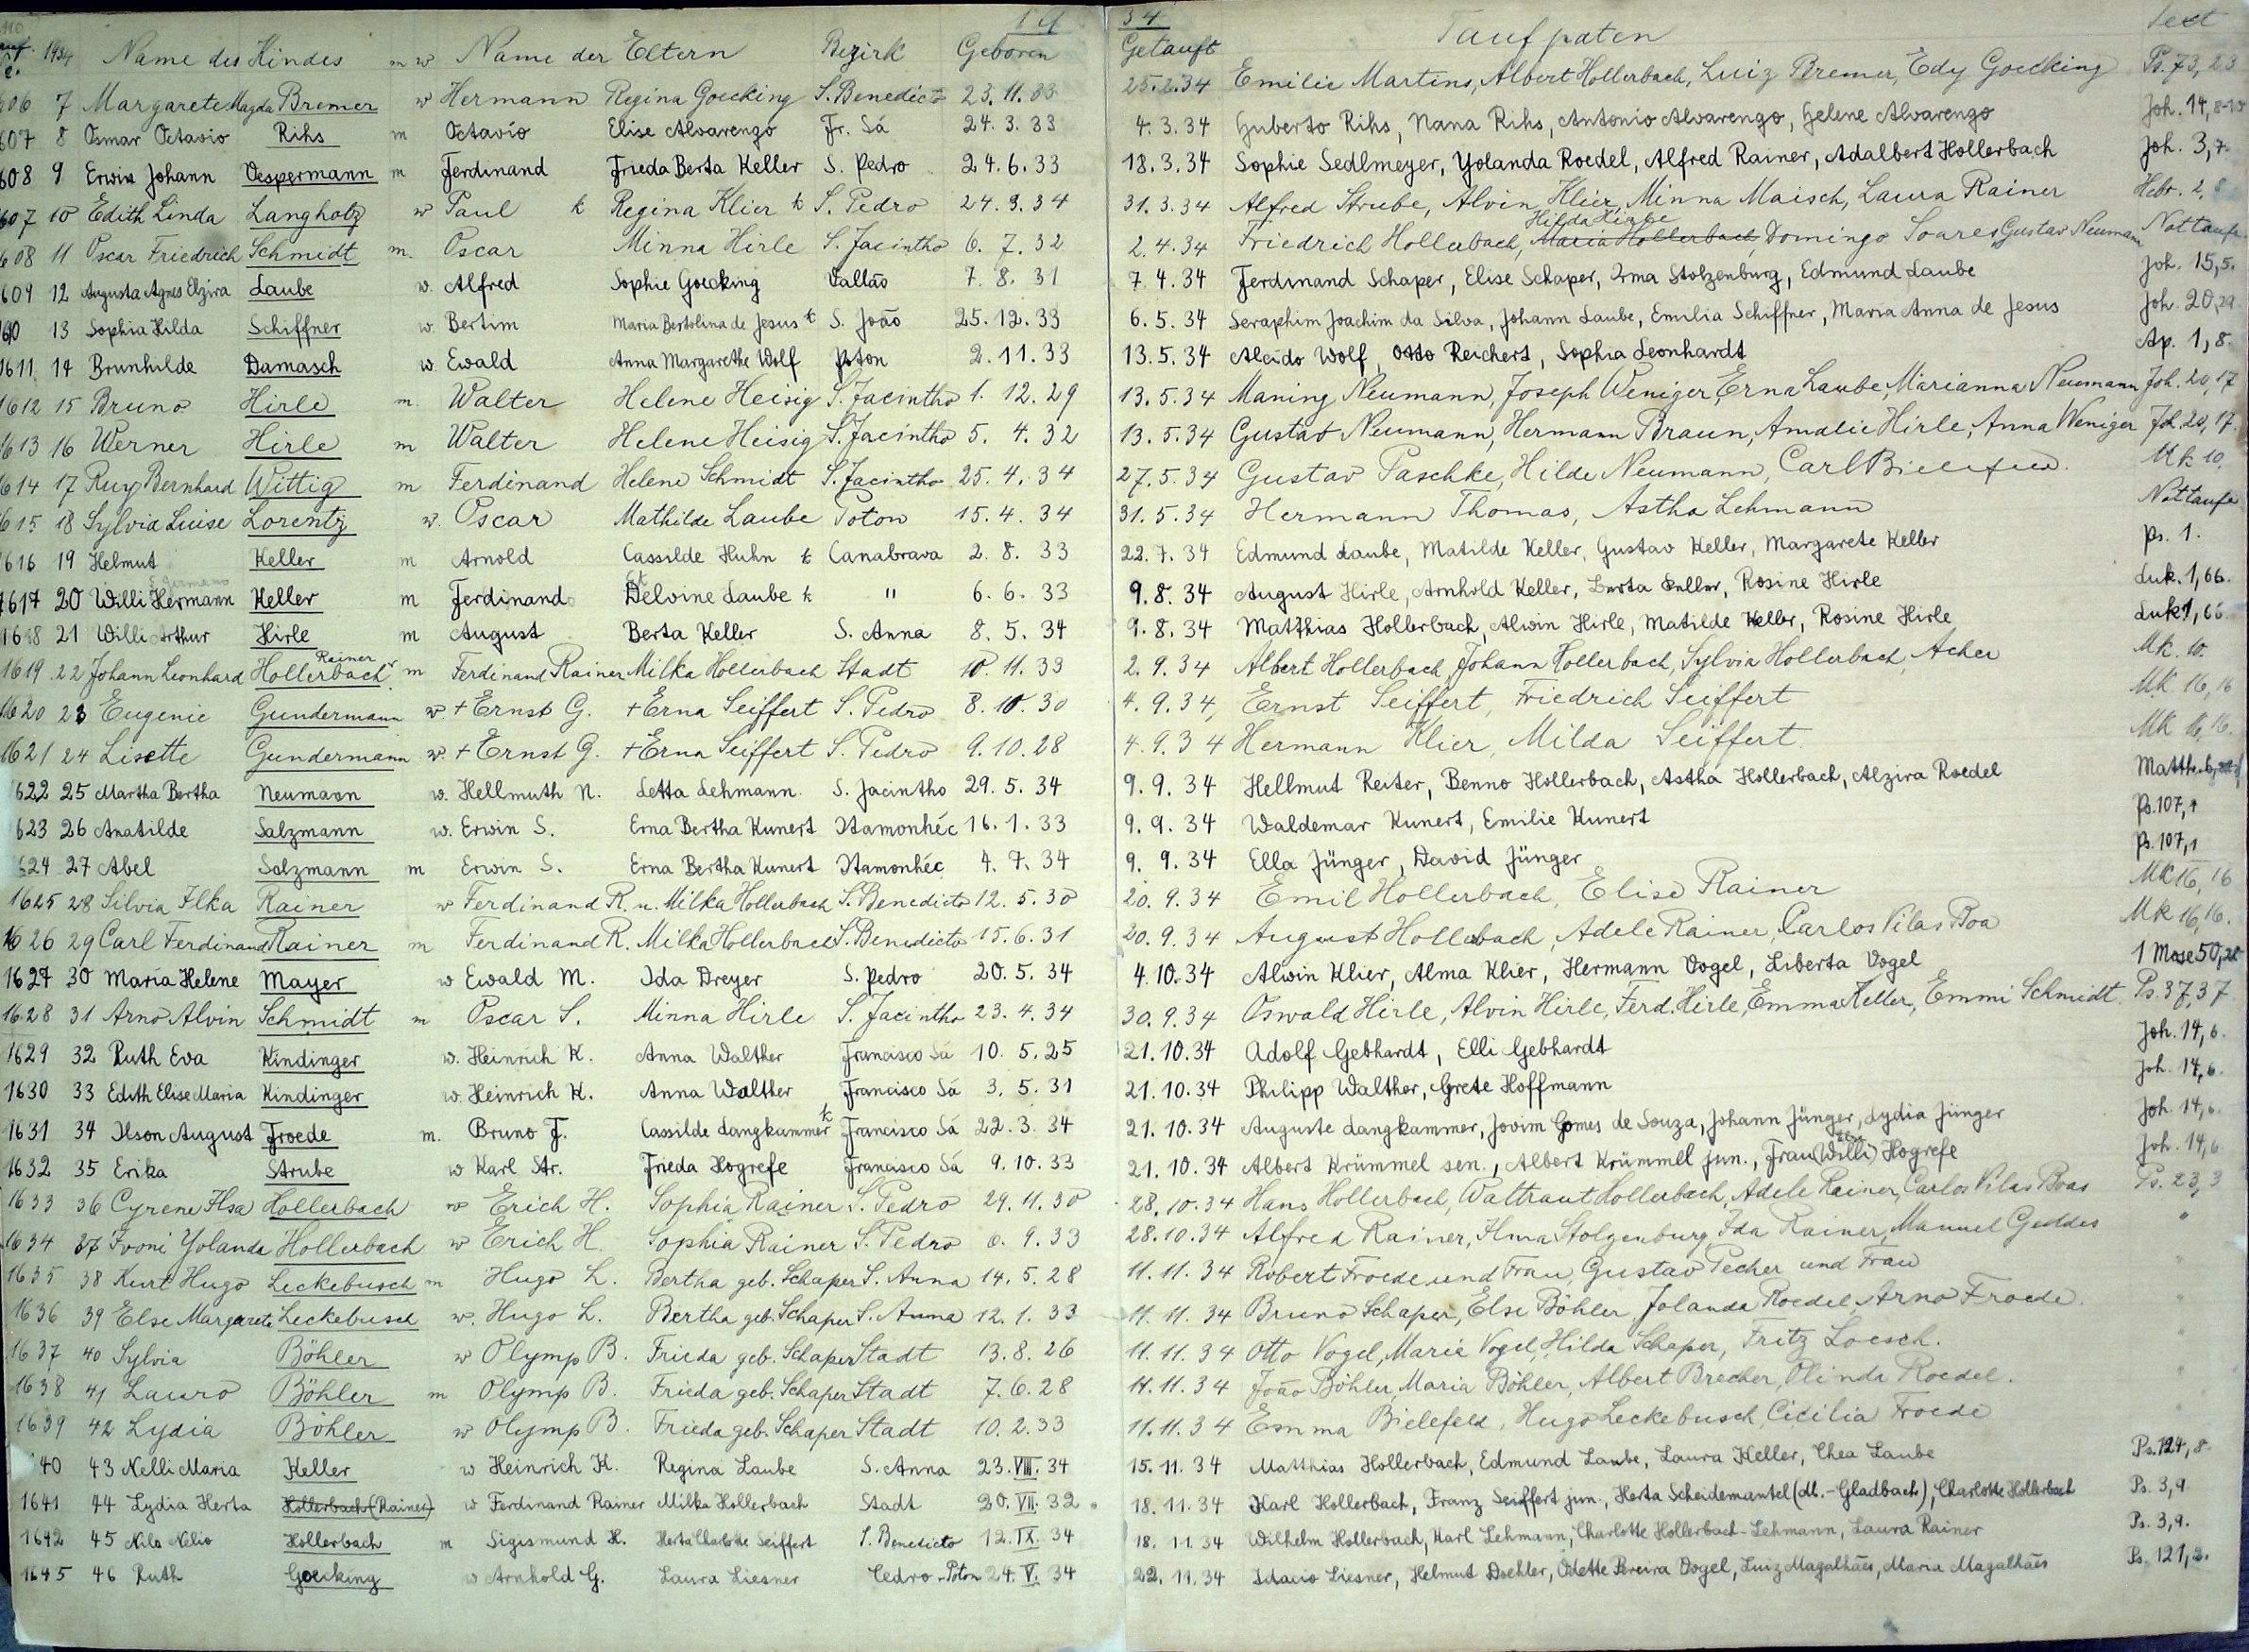 19 34
1934 Name des Kindes m w Name der Eltern Bezirk Geboren Getauft Taufpaten Text
606 7 Margarete Magda Bremer w Hermann Regina Goecking S. Benedicto 23.11.33 25.2.34 Emilie Martins, Albert Hollerbach, Luiz Bremer, Edy Goecking Ps. 73, 23
607 8 Osmar Octavio Rihs m Octavio Elise Alvarengo Fr. Sá 24.3.33 4.3.34 Huberto Rihs, Nana Rihs, Antonio Alvarengo, Helene Alvarengo Joh. 14, 8-10
608 9 Erwin Johann Oespermann m Ferdinand Frieda Berta Keller S. Pedro 24.6.33 18.3.34 Sophie Sedlmeyer, Yolanda Roedel, Alfred Rainer, Adalbert Hollerbach Joh. 3,7.
607 10 Edith Linda Langhotz w Paul k Regina Klier k S. Pedro 24.3.34 31.3.34 Alfred Strube, Alvin Klier, Minna Maisch, Laura Rainer Hebr. 2,
608 11 Oscar Friedrich Schmidt m. Oscar Minna Hirle S. Jacintho 6.7.32 2.4.34 Friedrich Hollerbach, Maria Hollerbach Domingo Soares Gustav Neumann Nottaufe
609 12 Augusta Agnes Elzira Laube w. Alfred Sophie Goecking Vallão 7.8.31 7.4.34 Ferdinand Schaper, Elise Schaper, Irma Stolzenburg, Edmund Laube Joh. 15,5.
610 13 Sophia Hilda Schiffner w. Bertim Maria Bertolina de Jesus k S. João 25.12.33 6.5.34 Seraphim Joachim da Silva, Johann Laube, Emilia Schiffner, Maria Anna de Jesus Joh. 20,29
1611 14 Brunhilde Damasch w. Ewald Anna Margarethe Wolf Poton 2.11.33 13.5.34 Alcido Wolf, Otto Reichert, Sophia Leonhardt Ap. 1,8.
1612 15 Bruno Hirle m. Walter Helene Heisig S. Jacintho 1.12.29 13.5.34 Maning Neumann, Joseph Weniger, Erna Laube, Marianna Neumann Joh. 20,17
1613 16 Werner Hirle m Walter Helene Heisig S. Jacintho 5.4.32 13.5.34 Gustav Neumann, Hermann Braun, Amalie Hirle, Anna Weniger Joh. 20,17.
1614 17 Ruy Bernhard Wittig m Ferdinand Helene Schmidt S. Jacintho 25.4.34 27.5.34 Gustav Paschke, Hilde Neumann, Carl Mk 10.
1615 18 Sylvia Luise Lorentz w. Oscar Mathilde Laube Poton 15.4.34 31.5.34 Hermann Thomas, Astha Lehmann Nottaufe
1616 19 Helmut Keller m Arnold Cassilde Huhn k Canabrava 2.8.33 22.7.34 Edmund Laube, Matilde Keller, Gustav Keller, Margarete Keller Ps. 1.
1617 20 Willi Hermann Keller m Ferdinand Delvine Laube k " 6.6.33 9.8.34 August Hirle, Arnhold Keller, Berta Keller, Rosine Hirle Luk. 1,66.
1618 21 Willi Arthur Hirle m August Berta Keller S. Anna 8.5.34 9.8.34 Matthias Hollerbach, Alwin Hirle, Matilde Keller, Rosine Hirle Luk 1,66.
Rainer
1619 22 Johann Leonhard Hollerbach m Ferdinand Rainer Milka Hollerbach Stadt 10.11.33 2.9.34 Albert Hollerbach, Johann Hollerbach, Sylvia Hollerbach, Acher Mk. 10.
1620 23 Eugenie Gundermann w. + Ernst G. + Erna Seiffert S. Pedro 8.10.30 4.9.34 Ernst Seiffert, Friedrich Seiffert Mk 16,16
1621 24 Lisette Gundermann w. + Ernst G. + Erna Seiffert S. Pedro 9.10.28 4.9.34 Hermann Klier, Milda Seiffert Mk 16,16.
1622 25 Martha Bertha Neumann w. Hellmuth N. Letta Lehmann S. Jacintho 29.5.34 9.9.34 Hellmut Reiter, Benno Hollerbach, Astha Hollerbach, Alzira Roedel Matth. 6,
1623 26 Anatilde Salzmann w. Erwin S. Erna Bertha Kunert Itamonhéc 16.1.33 9.9.34 Waldemar Kunert, Emilie Kunert Ps. 107,1
1624 27 Abel Salzmann m Erwin S. Erna Bertha Kunert Itamonhéc 4.7.34 9.9.34 Ella Jünger, David Jünger Ps. 107,1
1625 28 Silvia Ilka Rainer w Ferdinand R. u. Milka Hollerbach S. Benedicto 12.5.30 20.9.34 Emil Hollerbach, Elise Rainer Mk 16,16
1626 29 Carl Ferdinand Rainer m Ferdinand R. Milka Hollerbach S. Benedicto 15.6.31 20.9.34 August Hollerbach, Adele Rainer, Carlos Vilas Boa Mk 16,16.
1627 30 Maria Helene Mayer w Ewald M. Ida Dreyer S. Pedro 20.5.34 4.10.34 Alwin Klier, Alma Klier, Hermann Vogel, Liberta Vogel 1 Mose 50,20
1628 31 Arno Alvin Schmidt m Oscar S. Minna Hirle S. Jacintho 23.4.34 30.9.34 Oswald Hirle, Alvin Hirle, Ferd. Hirle, Emma Keller, Emmi Schmidt. Ps. 37,37
1629 32 Ruth Eva Kindinger w. Heinrich K. Anna Walther Francisco Sá 10.5.25 21.10.34 Adolf Gebhardt, Elli Gebhardt Joh. 14,6.
1630 33 Edith Elise Maria Kindinger w. Heinrich K. Anna Walther Francisco Sá 3.5.31 21.10.34 Philipp Walther, Grete Hoffmann Joh. 14,6.
1631 34 Ilson August Froede m. Bruno F. Cassilde Langkammer k Francisco Sá 22.3.34 21.10.34 Auguste Langkammer, Jovim Gomes de Souza, Johann Jünger, Lydia Jünger Joh. 14,6.
1632 35 Erika Strube w Karl Str. Frieda Hogrefe Francisco Sá 9.10.33 21.10.34 Albert Krümmel sen., Albert Krümmel jun., Frau (Willi) Hogrefe Joh. 14,6
1633 36 Cyrene Ilsa Hollerbach w Erich H. Sophia Rainer S. Pedro 29.11.30 28.10.34 Hans Hollerbach, Waltraut Hollerbach, Adele Rainer, Carlos Vilas Boas Ps. 23,3
1634 37 Ivoni Yolanda Hollerbach w Erich H. Sophia Rainer S. Pedro 6.9.33 28.10.34 Alfred Rainer, Ilma Stolzenburg, Ida Rainer, Manuel Geddes "
1635 38 Kurt Hugo Leckebusch m Hugo L. Bertha geb. Schaper S. Anna 14.5.28 11.11.34 Robert Froede und Frau, Gustav Pecher und Frau "
1636 39 Else Margarete Leckebusch w. Hugo L. Bertha geb. Schaper S. Anna 12.1.33 11.11.34 Bruno Schaper, Else Böhler, Jolanda Roedel, Arno Froede. "
1637 40 Sylvia Böhler w Olymp B. Frieda geb. Schaper Stadt 13.8.26 11.11.34 Otto Vogel, Marie Vogel, Hilda Schaper, Fritz Loesch. "
1638 41 Lauro Böhler m Olymp B. Frieda geb. Schaper Stadt 7.6.28 11.11.34 João Böhler, Maria Böhler, Albert Brecher, Olinda Roedel. "
1639 42 Lydia Böhler w Olymp B. Frieda geb. Schaper Stadt 10.2.33 11.11.34 Emma Bielefeld, Hugo Leckebusch, Cicilia Froede "
40 43 Nelli Maria Keller w Heinrich K. Regina Laube S. Anna 23.VIII.34 15.11.34 Matthias Hollerbach, Edmund Laube, Laura Keller, Thea Laube Ps. 124,8.
1641 44 Lydia Herta Hollerbach (Rainer) w Ferdinand Rainer Milka Hollerbach Stadt 20.VII.32. 18.11.34 Karl Hollerbach, Franz Seiffert jun., Herta Scheidemantel (M.-Gladbach), Charlotte Hollerbach Ps. 3,9
1642 45 Nilo Nelio Hollerbach m Sigismund H. Herta Charlotte Seiffert S. Benedicto 12.IX.34 18.11.34 Wilhelm Hollerbach, Karl Lehmann, Charlotte Hollerbach-Lehmann, Laura Rainer Ps. 3,9.
1645 46 Ruth Goecking w Arnhold G. Laura Liesner Cedro-Poton 24.V.34 22.11.34 Idacio Liesner, Helmut Doehler, Odette Pereira Vogel, Luiz Magalhães, Maria Magalhães Ps. 121,2.